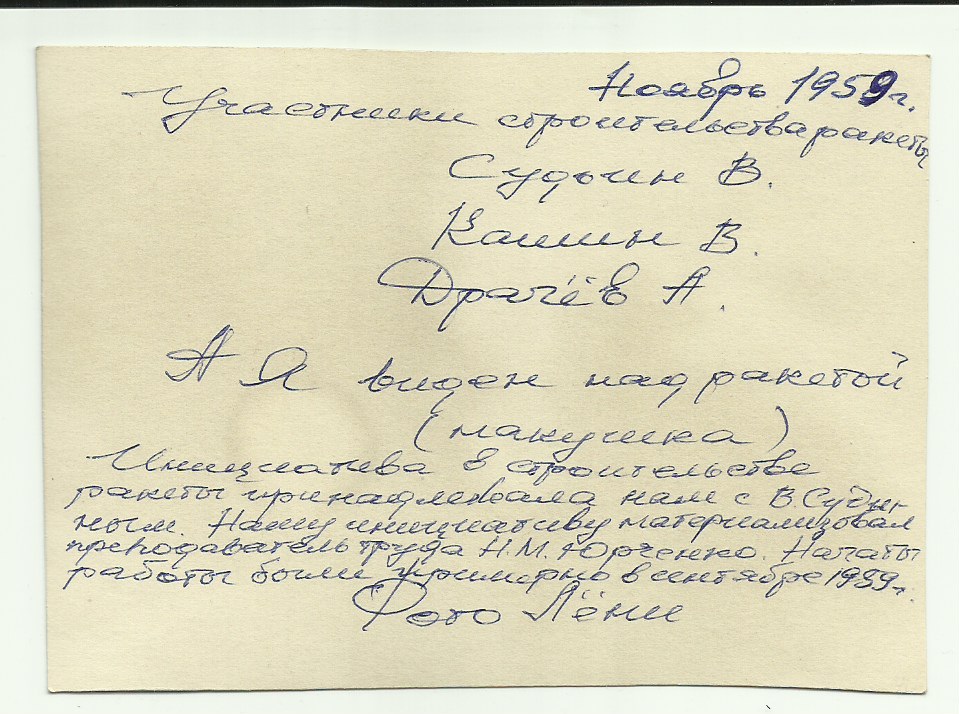 Ноябрь 1959 г.
Участники строительства ракеты
Судьин В.
Кашин В.
Драчёв А.
А Я виден над ракетой
(макушка)
Инициатива в строительстве
ракеты принадлежала нам с В. Судьи-
ным. Нашу инициативу материализовал
преподаватель труда Н.М. Юрченко. Начаты
работы были примерно в сентябре 1959 г.
Фото Лёни